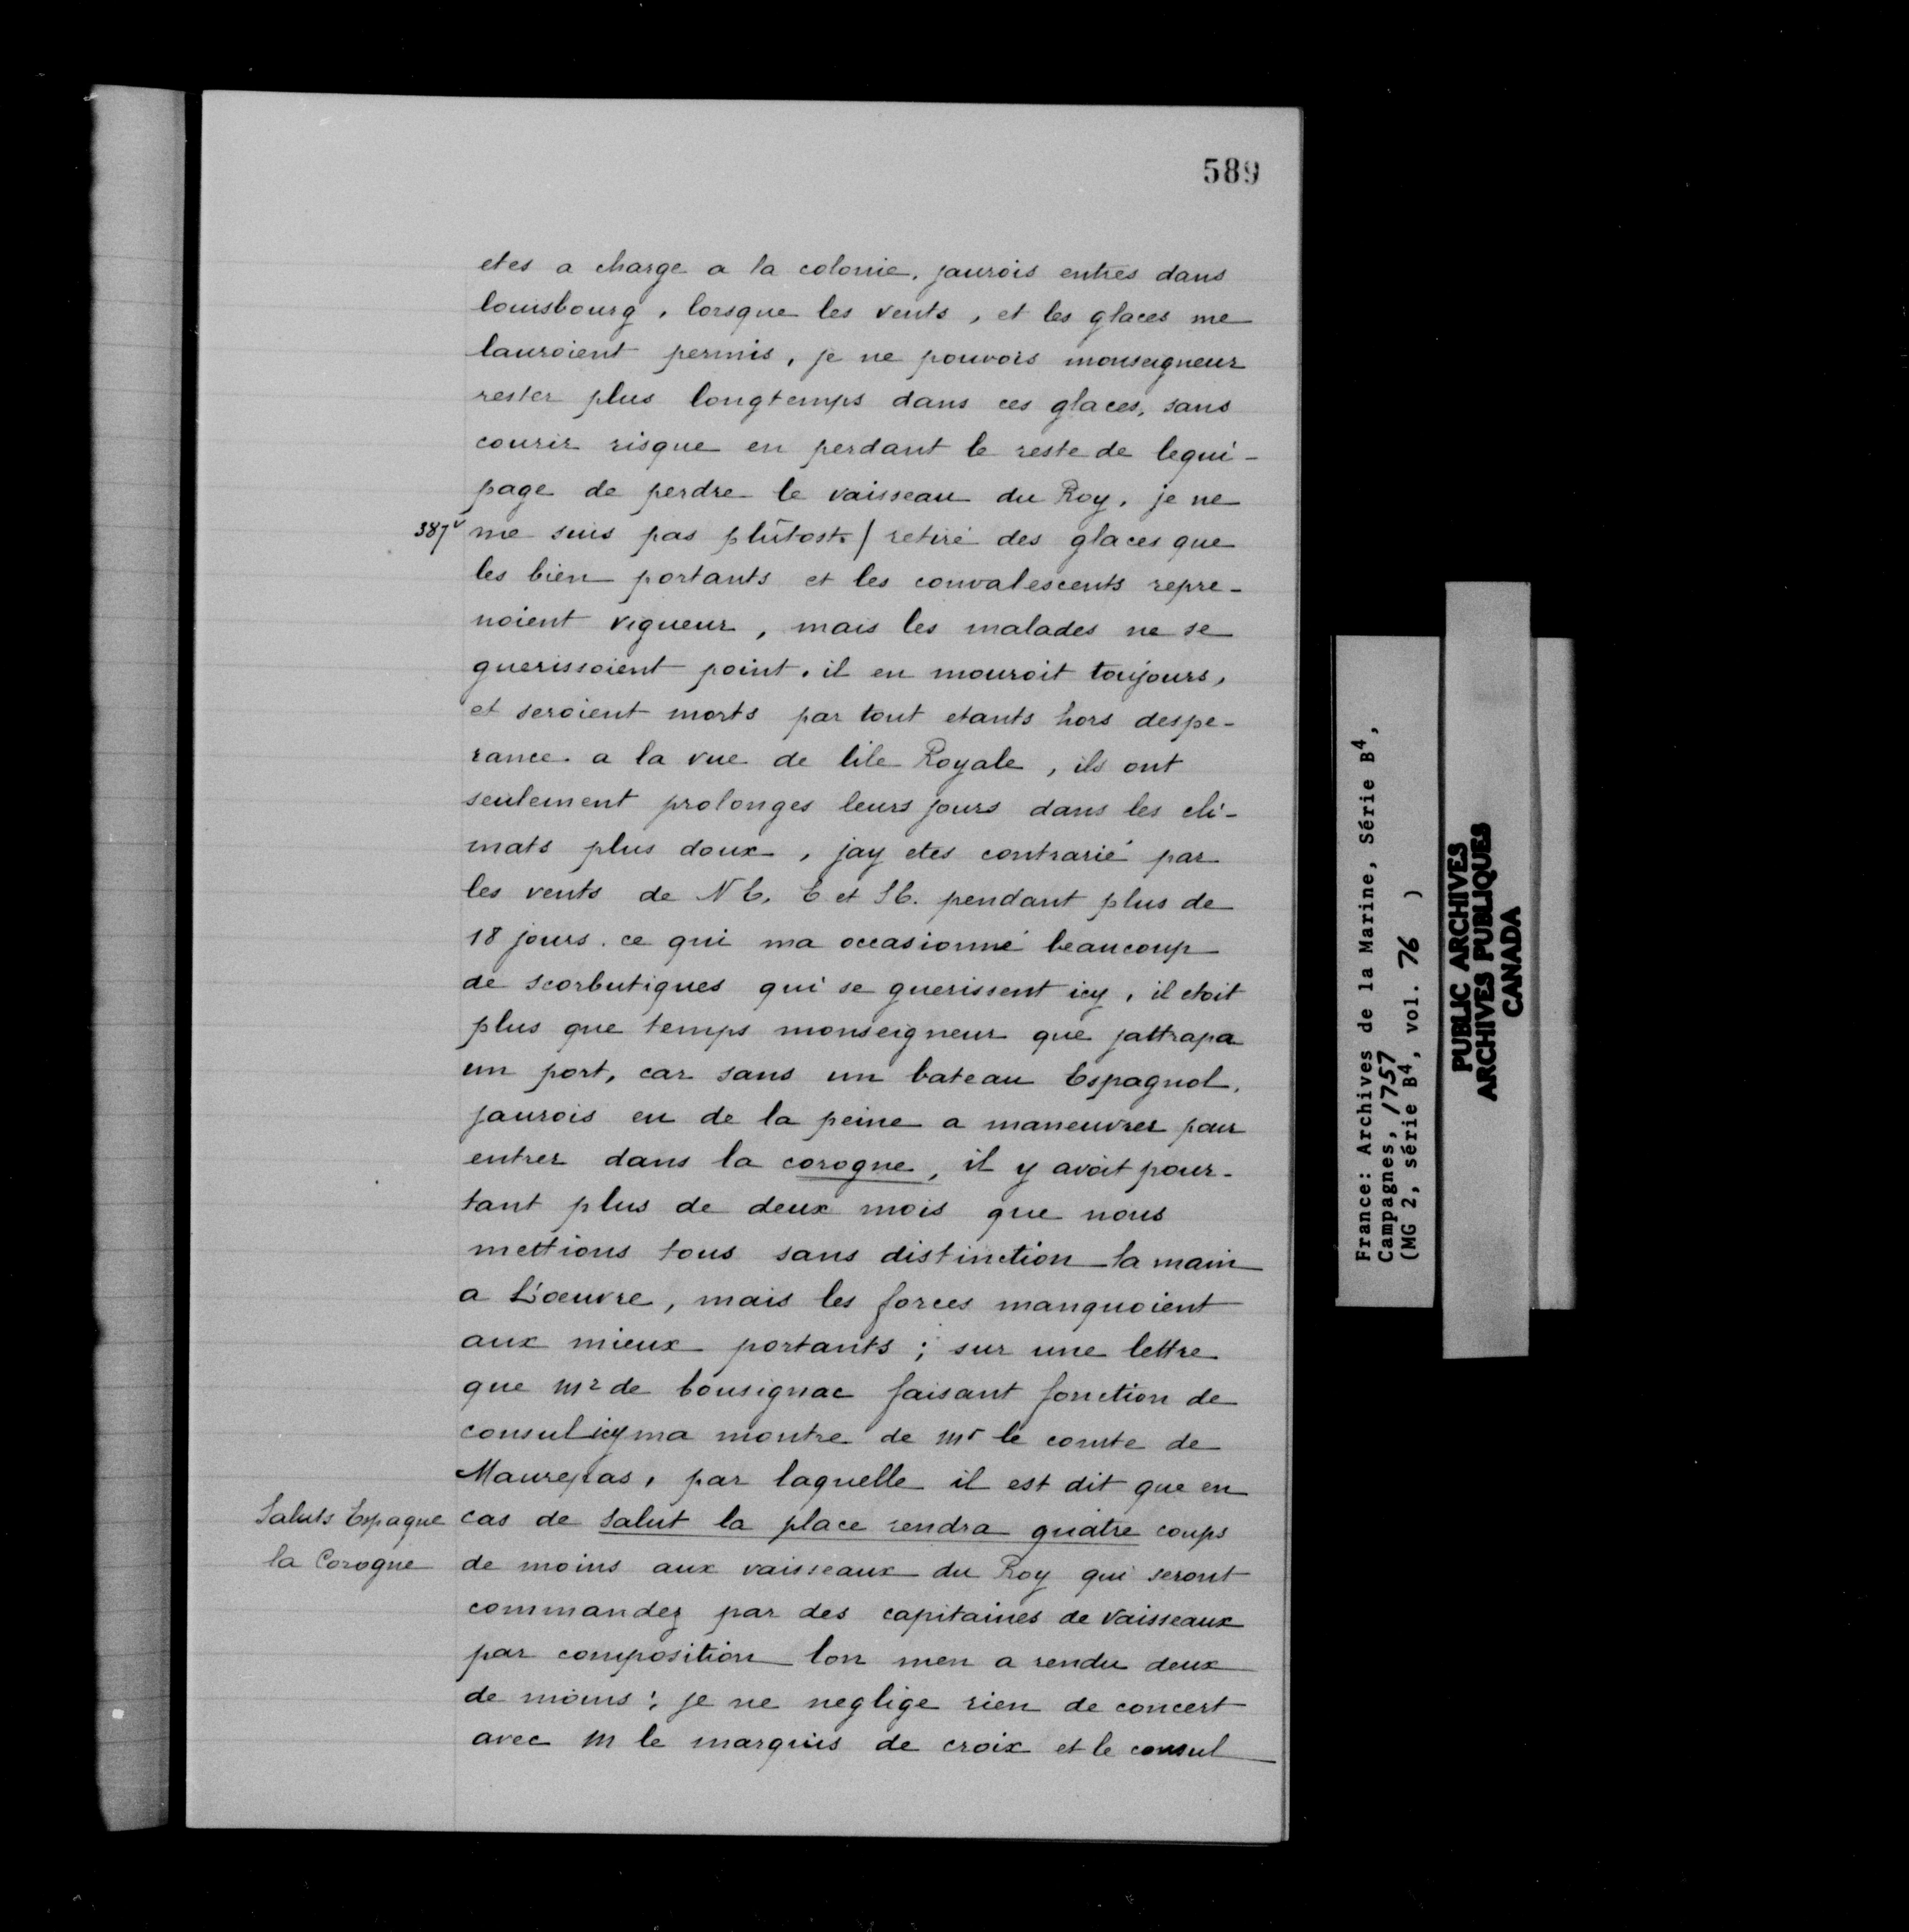 589
etes a charge a la colonie. jaurois entres dans
louisbourg, lorsque les vents, et les glaces me
lauroient permis, je ne pouvois monseigneur
rester plus longtemps dans ces glaces, sans
courir risque en perdant le reste de lequi-
page de perdre le vaisseau du Roy. je ne
387v me suis pas plûtost / retiré des glaces que
les bien portants et les convalescents repre-
noient vigueur, mais les malades ne se
guerissoient point. il en mouroit toujours,
et seroient morts par tout etants hors despe-
rance. a la vue de lile Royale, ils ont
seulement prolonges leurs jours dans les cli-
mats plus doux, jay etes contrarié par
les vents de NE. E et SE. pendant plus de
18 jours. ce qui ma occasionné beaucoup
de scorbutiques qui se guerissent icy, il etoit
plus que temps monseigneur que jattrapa
un port, car sans un bateau Espagnol,
jaurois eu de la peine a maneuvrer pour
entrer dans la corogne, il y avoit pour-
tant plus de deux mois que nous
mettions tous sans distinction la main
a L'œuvre, mais les forces manquoient
aux mieux portants; sur une lettre
que Mr de bousignac faisant fonction de
consul icy ma montre de Mr le comte de
Maurepas, par laquelle il est dit que en
Saluts Espagne cas de salut la place rendra quatre coups
la Corogne de moins aux vaisseaux du Roy qui seront
commandez par des capitaines de vaisseaux
par composition lon men a rendu deux
de moins; je ne neglige rien de concert
avec M le marquis de croix et le consul
France: Archives de la Marine, Série B4,
Campagnes, 1757
(MG 2, série B4, vol. 76 )
PUBLIC ARCHIVES
ARCHIVES PUBLIQUES
CANADA